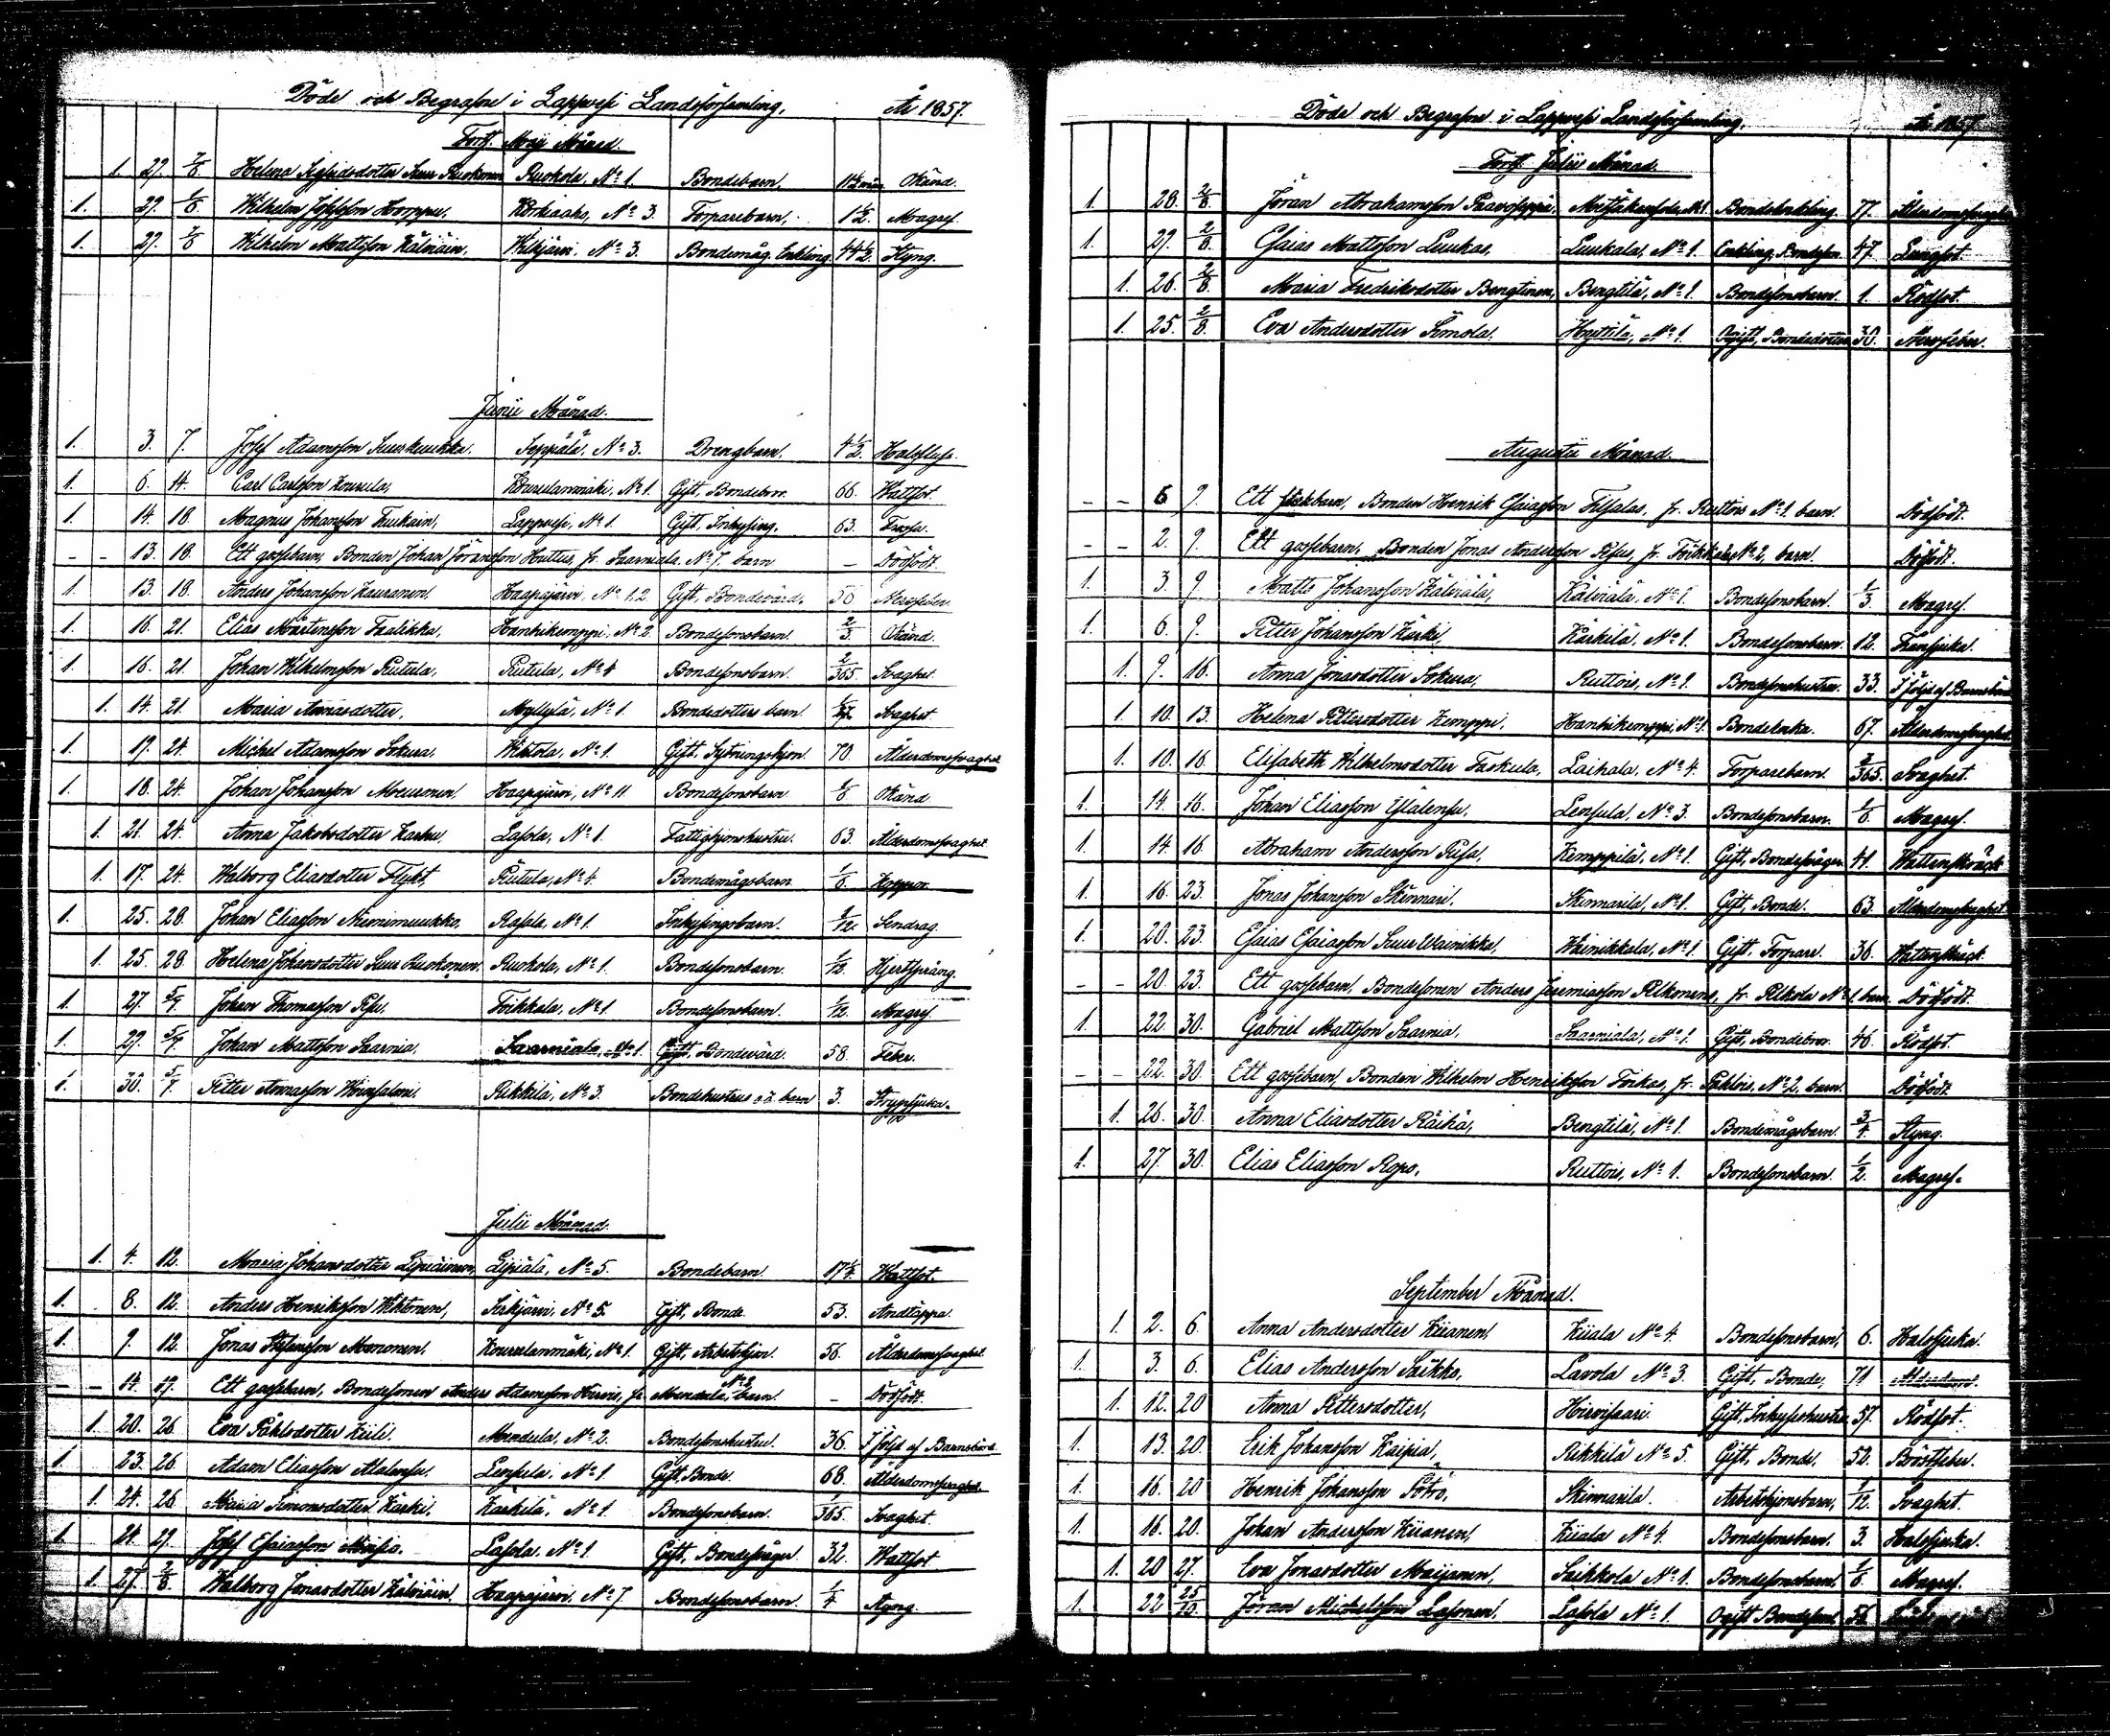 Döde och Begrafne i Lappvesi Landsförsamling, År 1857.
Forts. Maji Månad.
1. 29. 7/6 Helena Sigfridsdotter Suur Ruokonen Ruokola, No 1. Bondebarn. Okänd.
1. 29. 1/6. Wilhelm Josefsson Horppu. No 3. Torparebarn, 1 1/2. Magref.
1. 27. 7/6 Wilhelm Mattsson Kälviäin, Wilkjärvi, No 3. Bondemåg, Enkling. 44 1/2. Styng.
Junii Månad.
1. 3. 7. Josef Adamsson Suurkuukka. Seppälä, No 3. Drengbarn. 4 1/2. Halsfluss.
1. 6. 14. Carl Carlsson Kousula, Kouvulanmäki, No 1. Gift, Bondebror. 66. Wattsot.
1. 14. 18. Magnus Johansson Tuukain, Lappvesi, No 1. Gift, Inhysing. 63. Frossa.
- - 13. 18. Ett gossebarn, Bonden Johan Göransson Huttus, fr. Saarniala No 7. barn - Dödfödt.
1. 13. 18. Anders Johansson Kauranen. Haapajärvi, No 1,2 Gift, Bondevärd. 50 Nervfeber.
1. 16. 21. Elias Mårtensson Taalikka, Hanhikemppi, No 2. Bondesonsbarn. 2/3. Okänd.
1. 16. 21. Johan Wilhelmsson Rutula, Rutula, No 4 Bondesonsbarn. 2/365. Svaghet.
1. 14. 21. Maria Annasdotter, Myllylä, No 1. Bondedotters barn. Svaghet.
1. 19. 24. Michel Adamsson Sokura. Wihtola, No 1. Gift, Sytningshjon. 70. Ålderdomssvaghet.
1. 18. 24. Johan Johansson Mouronen. Haapajärvi, No 11 Bondesonsbarn 1/6 Okänd
1. 21. 24. Anna Jakobsdotter Karhu, Lasola, No 1. Fattighjonshustru. 63. Ålderdomssvaghet.
1. 17. 24. Walborg Eliasdotter Flykt, Rutula, No 4. Bondemågsbarn. 1/6. Koppor.
1. 25. 28. Johan Eliasson Niemimuukko, Rasala, No 1. Inhysingsbarn. 1/12. Sendrag.
1. 25. 28. Helena Johansdotter Suur Ruokonen. Ruokola, No 1. Bondesonsbarn. 1/12. Hjertsprång.
1. 27. 5/7. Johan Thomasson Pesu. Toikkala, No 1. Bondesonsbarn. 1/12. Magref.
1. 29. 5/7. Johan Mattsson Saarnia. Saarniala, No 1. Gift, Bondevärd. 58. Feber.
1. 30. 5/7. Petter Annasson Woinsalmi. Rikkilä, No 3. Bondehustrus o.ä. barn 3. Strypsjuka.
Julii Månad.
1. 4. 12. Maria Johansdotter Lipiäinen, Lipiälä, No 5. Bondebarn. 17 1/4. Wattsot.
1. 8. 12. Anders Henriksson Wihtonen, Sirkjärvi, No 5. Gift, Bonde. 53. Andtäppa.
1. 9. 12. Jonas Stefansson Mononen. Kourulanmäki, No 1. Gift, Arbetshjon. 56. Ålderdomssvaghet.
- - 14. 19. Ett gossebarn, Bondesonen Anders Adamsson Hirvis, fr. Mundula, No 2, barn - Dödfödt.
1. 20. 26. Eva Påhlsdotter Kiili. Mundula, No 2. Bondesonshustru. 36. I följd af Barnsbörd.
1. 23. 26. Adam Eliasson Alalensu. Lensula, No 1. Gift, Bonde. 68. Ålderdomssvaghet.
1. 24. 26. Maria Simonsdotter Kärki. Kärkilä, No 1. Bondesonsbarn. 1/365. Svaghet.
1. 24. 29. Josef Esaiasson Lasola. No 1. Gift, Bondesvåger. 32. Wattsot
1. 27. 2/8. Walborg Jonasdotter Kälviäin. Haapajärvi, No 7. Bondesonsbarn. 1/4 Styng
Döde och Begrafne i Lappvesi Landsförsamling. År 1857
Forts. Julii Månad.
1. 28. 2/8. Jöran Abrahamsson Paavoseppi, No 1. Bondeenkling. 77. Ålderdomssvaghet
1. 29. 2/8. Esaias Mattsson Luukas, Luukala, No 1. Enkling, Bondeson. 47. Lungsot.
1. 26. 2/8. Maria Fredriksdotter Bengtinen, Bengtilä, No 1. Bondesonsbarn. 1. Rödsot.
1. 25. 2/8. Eva Andersdotter Simola. Hyttilä, No 1. Ogift, Bondedotter 30. Nervfeber.
Augusti Månad.
- - 6 9. Ett flickbarn, Bonden Henrik Esaiasson Filpalas, fr. Ruttois No 1. barn. Dödfödt.
- - 2. 9. Ett gossebarn, Bonden Jonas Andersson Pesus, fr. Toikkala No 2, barn. Dödfödt.
1. 3. 9. Matts Johansson Kälviälä, Kälviälä. No 1. Bondesonsbarn. 1/3. Magref.
1. 6. 9. Petter Johansson Kärki, Kärkilä, No 1. Bondesonsbarn. 12. Transjuka.
1. 9. 16. Anna Jonasdotter Sokura, Ruttois, No 1. Bondesonshustru. 33. I följd af Barnsbörd
1. 10. 13. Helena Pettersdotter Kemppi, Hanhikemppi, No 1. Bondeenka. 67. Ålderdomssvaghet
1. 10. 16. Elisabeth Wilhelmsdotter Taskula, Laihala, No 4. Torparebarn. 2/365. Svaghet.
1. 14. 16. Johan Eliasson Ylälensu, Lensula, No 3. Bondesonsbarn. 1/6. Magref.
1. 14. 16. Abraham Andersson Pesu, Kemppilä, No 1. Gift, Bondesvåger. 41. Wattenskräck.
1. 16. 23. Jonas Johansson Skinnari, Skinnarila, No 1. Gift, Bonde. 63. Ålderdomssvaghet
1. 20. 23. Esaias Esaiasson Suur Wainikka, Wainikkala, No 1. Gift, Torpare. 36. Wattenskräck.
- - 20. 23. Ett gossebarn, Bondesonen Anders Jeremiasson Pelkonens, fr. Pelkola No 1 barn. Dödfödt.
1. 22. 30. Gabriel Mattsson Saarnia, Saarniala, No 1. Gift, Bondebror. 46. Rödsot.
- - 22. 30. Ett gossebarn, Bonden Wilhelm Henriksson Toikas, fr. No 2, barn. Dödfödt.
1. 26. 30. Anna Eliasdotter Räihä, Bengtilä, No 1. Bondemågsbarn. 3/4. Styng.
1. 27. 30. Elias Eliasson Ropo, Ruttois, No 1. Bondesonsbarn. 1/2. Magref.
September Månad.
1. 2. 6. Anna Andersdotter Kiianen, Kiiala No 4. Bondesonsbarn, 6. Halssjuka.
1. 3. 6. Elias Andersson Saikko, Lavola No 3. Gift, Bonde, 71 Ålderdom.
1. 12. 20 Anna Pettersdotter, Hirvisaari. Gift, Inhyseshustru 57. Rödsot.
1. 13. 20. Erik Johansson Kaipia, Rikkilä No 5. Gift, Bonde. 52. Bröstfeber.
1. 16. 20 Henrik Johansson Pötrö, Skinnarila. Arbetshjonsbarn, 1/12. Svaghet.
1. 16. 20. Johan Andersson Kiianen, Kiiala No 4. Bondesonsbarn. 3. Halssjuka.
1. 20 27. Eva Jonasdotter Maijanen, Saikkola No 1. Bondesonsbarn. 1/6. Magref.
1. 22 25/10. Jöran Michelsson Lasonen, Lasola No 1. Ogift Bondeson 56.